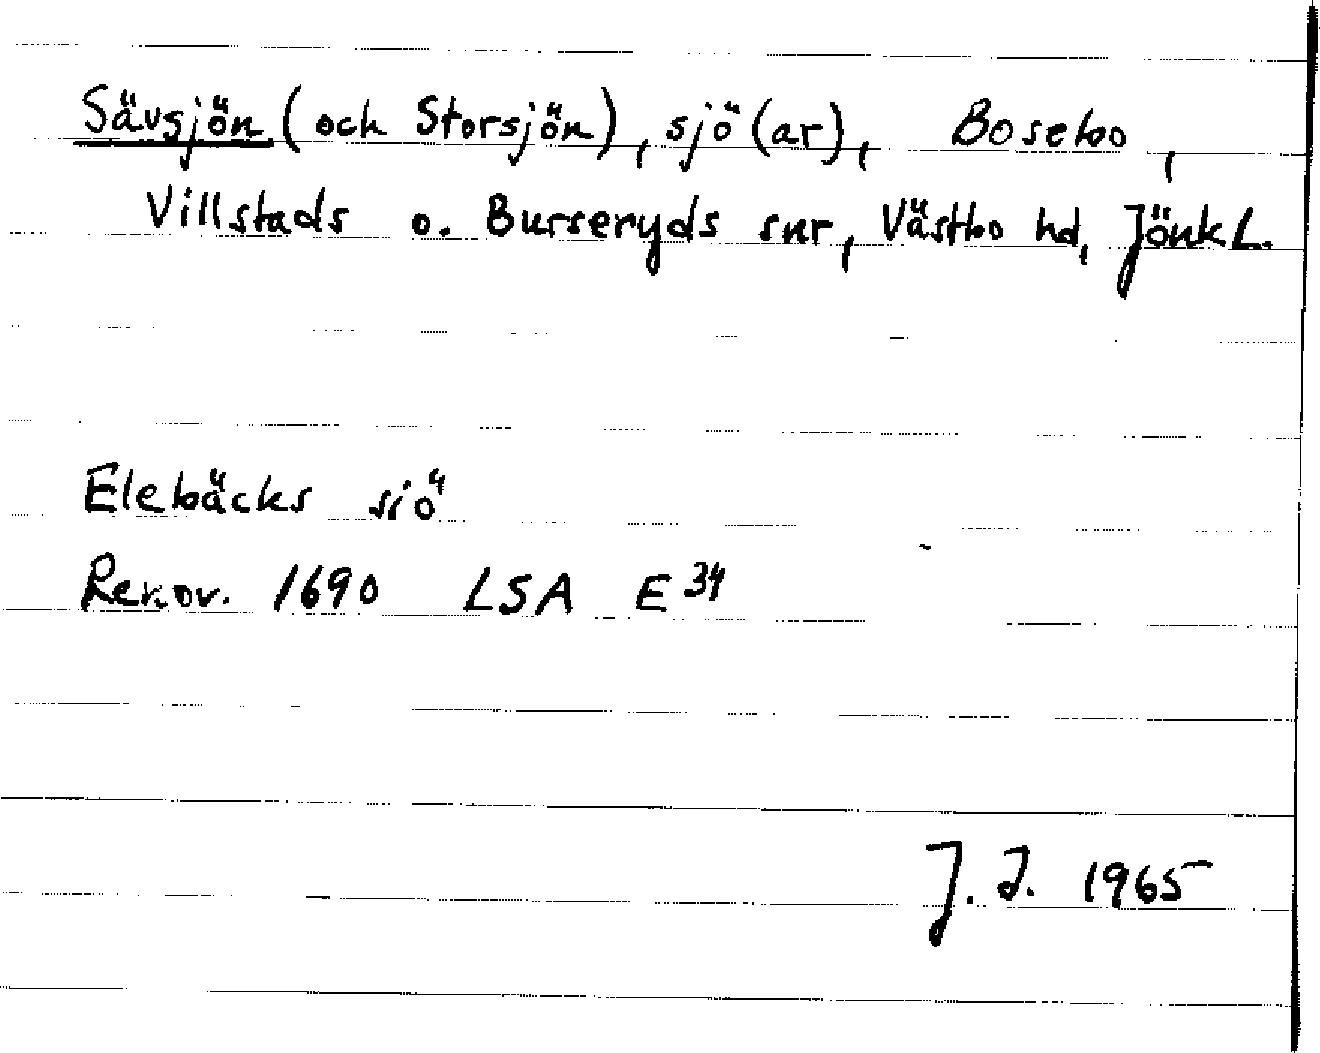 Sävsjön (och Storsjön), sjö(ar), Bosebo,
Villstads o. Burseryds snr, Västbo hd, Jönk L.
Elebäcks siö
Renov. 1690 LSA E 34
J. I. 1965